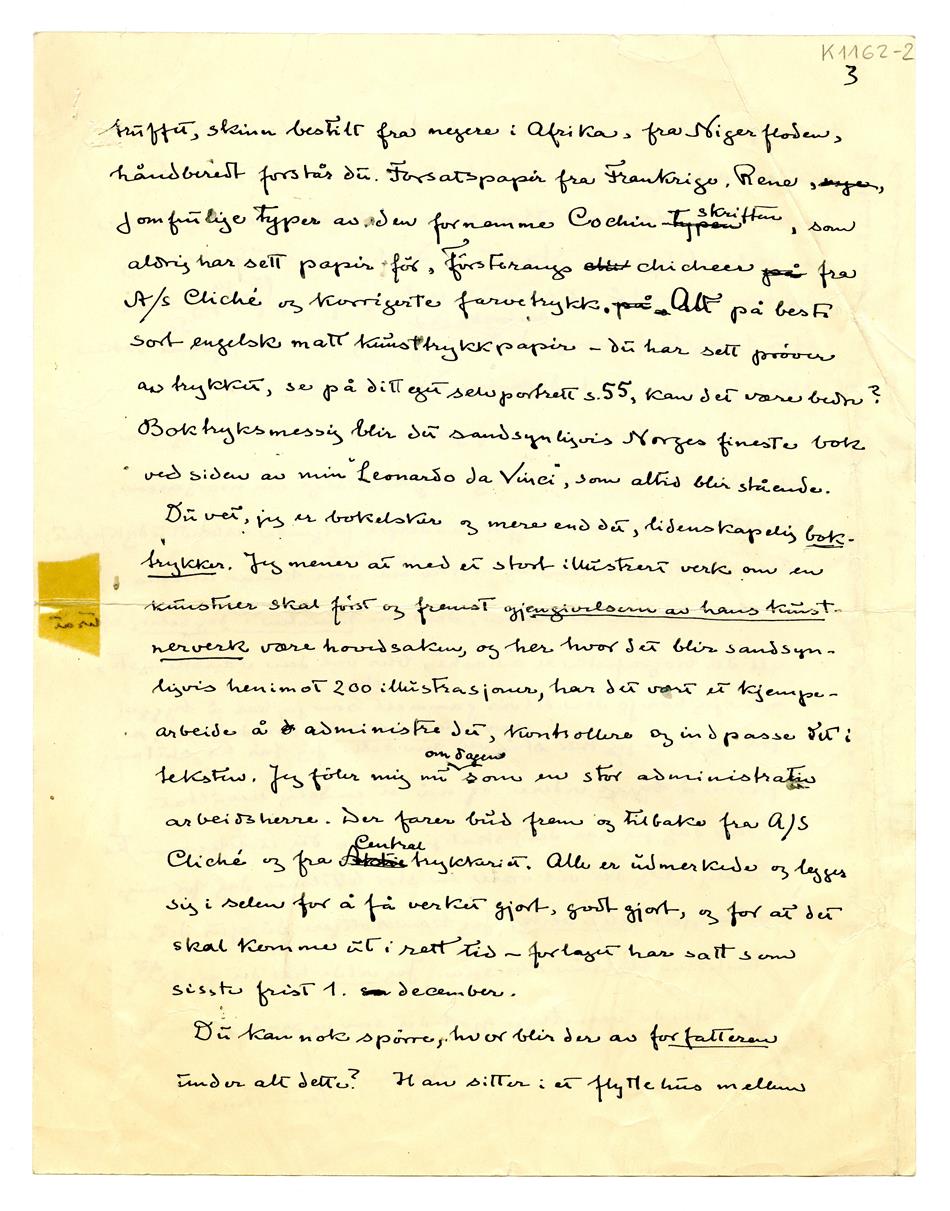 K1162-2
3
truffet, skinn bestilt fra negere i Afrika, fra Niger floden,
håndberedt forstår du. Forsatspapir fra Frankrige. Rene, nye,
jomfrulige typer av den fornemme Cochin typen skriften, som
aldrig har sett papir før, Førsterangs chicheer på fra
A/s Cliché og korrigerte farvetrykk. på. Alt på beste
sort engelsk matt kunsttrykkpapir – du har sett prøver
av trykket, se på ditt eget selvportrett s. 55, kan det være bedre?
Boktryksmessig blir det sandsynligvis Norges fineste bok
ved siden av min "Leonardo da Vinci", som altid blir stående.
Du vet, jeg er bokelsker og mere end det, lidenskapelig bok-
trykker. Jeg mener at med et stort illustrert verk om en
kunstner skal først og fremst gjengivelsern av hans kunst-
nerverk være hovedsaken, og her hvor det blir sandsyn-
ligvis henimot 200 illustrasjoner, har det vært et kjempe-
arbeide å administre det, kontrollere og indpasse det i
teksten. Jeg føler mig nu om dagen som en stor administrativ
arbeidsherre. Der farer bud frem og tilbake fra A/S
Cliché og fra Centraltrykkeriet. Alle er udmerkede og legges
sig i selen for å få verket gjort, godt gjort, og for at det
skal komme ut i rett tid – forlaget har satt som
sisste frist 1. december.
Du kan nok spørre, hvor blir der av forfatteren
under alt dette? Han sitter i et flyttehus mellem